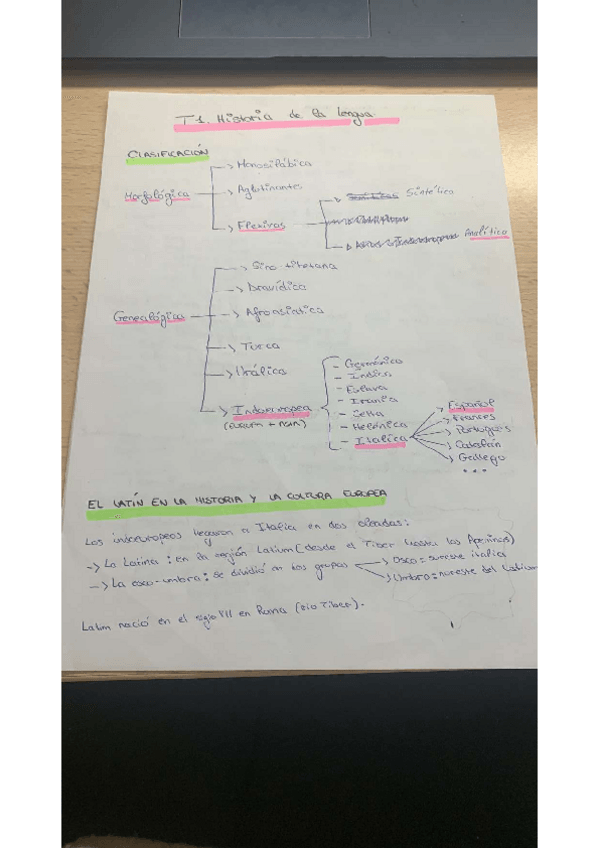 T1. Historia de la lengua
CLASIFICACIÓN
Morfológica
-> Monosilábica
-> Aglutinante
-> Flexivas
-> Sintético
-> Analítico
Genealógica
-> Sino-tibetana
-> Dravídica
-> Afroasiática
-> Turca
-> Urálica
-> Indoeuropea
(EUROPA + ASIA)
- Germánica
- Índica
- Eslava
- Irania
- Celta
- Helénica
- Itálica
-> Español
-> Francés
-> Portugués
-> Catalán
-> Gallego
...
EL LATÍN EN LA HISTORIA Y LA CULTURA EUROPEA
Los indoeuropeos llegaron a Italia en dos oleadas:
-> La Latina: en la región Latium (desde el Tíber hasta los Apeninos)
-> La osco-umbra: se dividió en dos grupos
-> Osco = sureste itálica
-> Umbro = noreste del Latium
Latím nació en el siglo VII en Roma (Río Tíber).